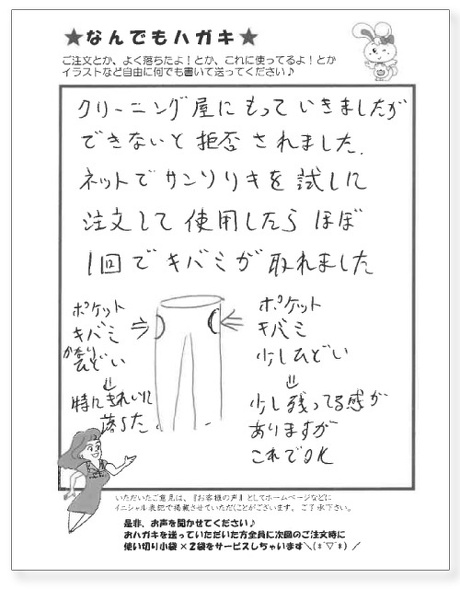 ★なんでもハガキ★
ご注文とか、よく落ちたよ!とか、これに使ってるよ!とか
イラストなど自由に何でも書いて送ってください♪
クリーニング屋にもっていきましたが
できないと拒否されました.
ネットでサンソリキを試しに
注文して使用したらほぼ
1回でキバミが取れました
ポケット
キバミ
かなり
ひどい
⇓
特にきれいに
落ちた。
ポケット
キバミ
少しひどい
⇓
少し残ってる感が
ありますが
これでOK
いただいたご意見は、『お客様の声』としてホームページなどに
イニシャル表記で掲載させていただくことがございます。ご了承下さい。
是非、お声を聞かせてください♪
おハガキを送っていただいた方全員に次回のご注文時に
使い切り小袋×2袋をサービスしちゃいます＼(*´▽`*)／